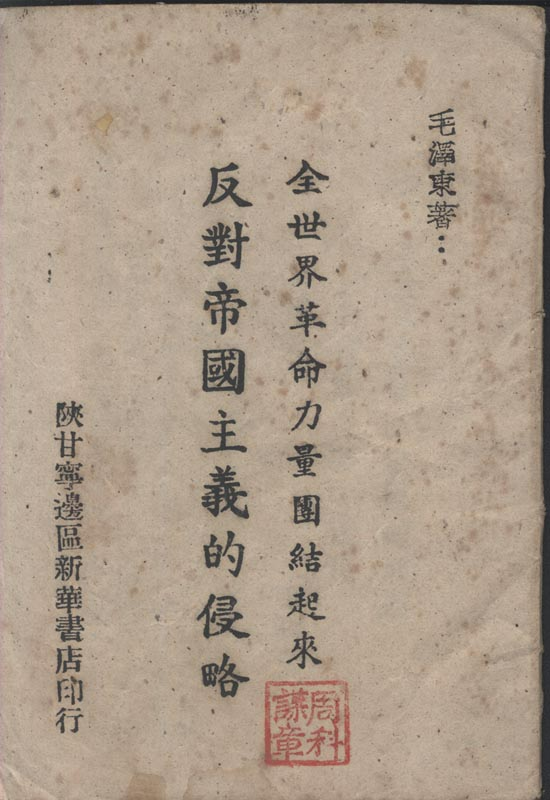 毛澤東著：
全世界革命力量團結起來
反對帝國主義的侵略
陝甘寧邊區新華書店印行
周科
謀章